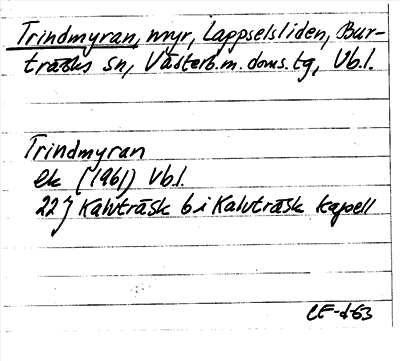 Trindmyran, myr, Lappselsliden, Bur-
träsks sn, Västerb. m. doms. tg, Vb.l.
Trindmyran
ek (1961) Vb.l.
22 j Kalvträsk b i Kalvträsk kapell